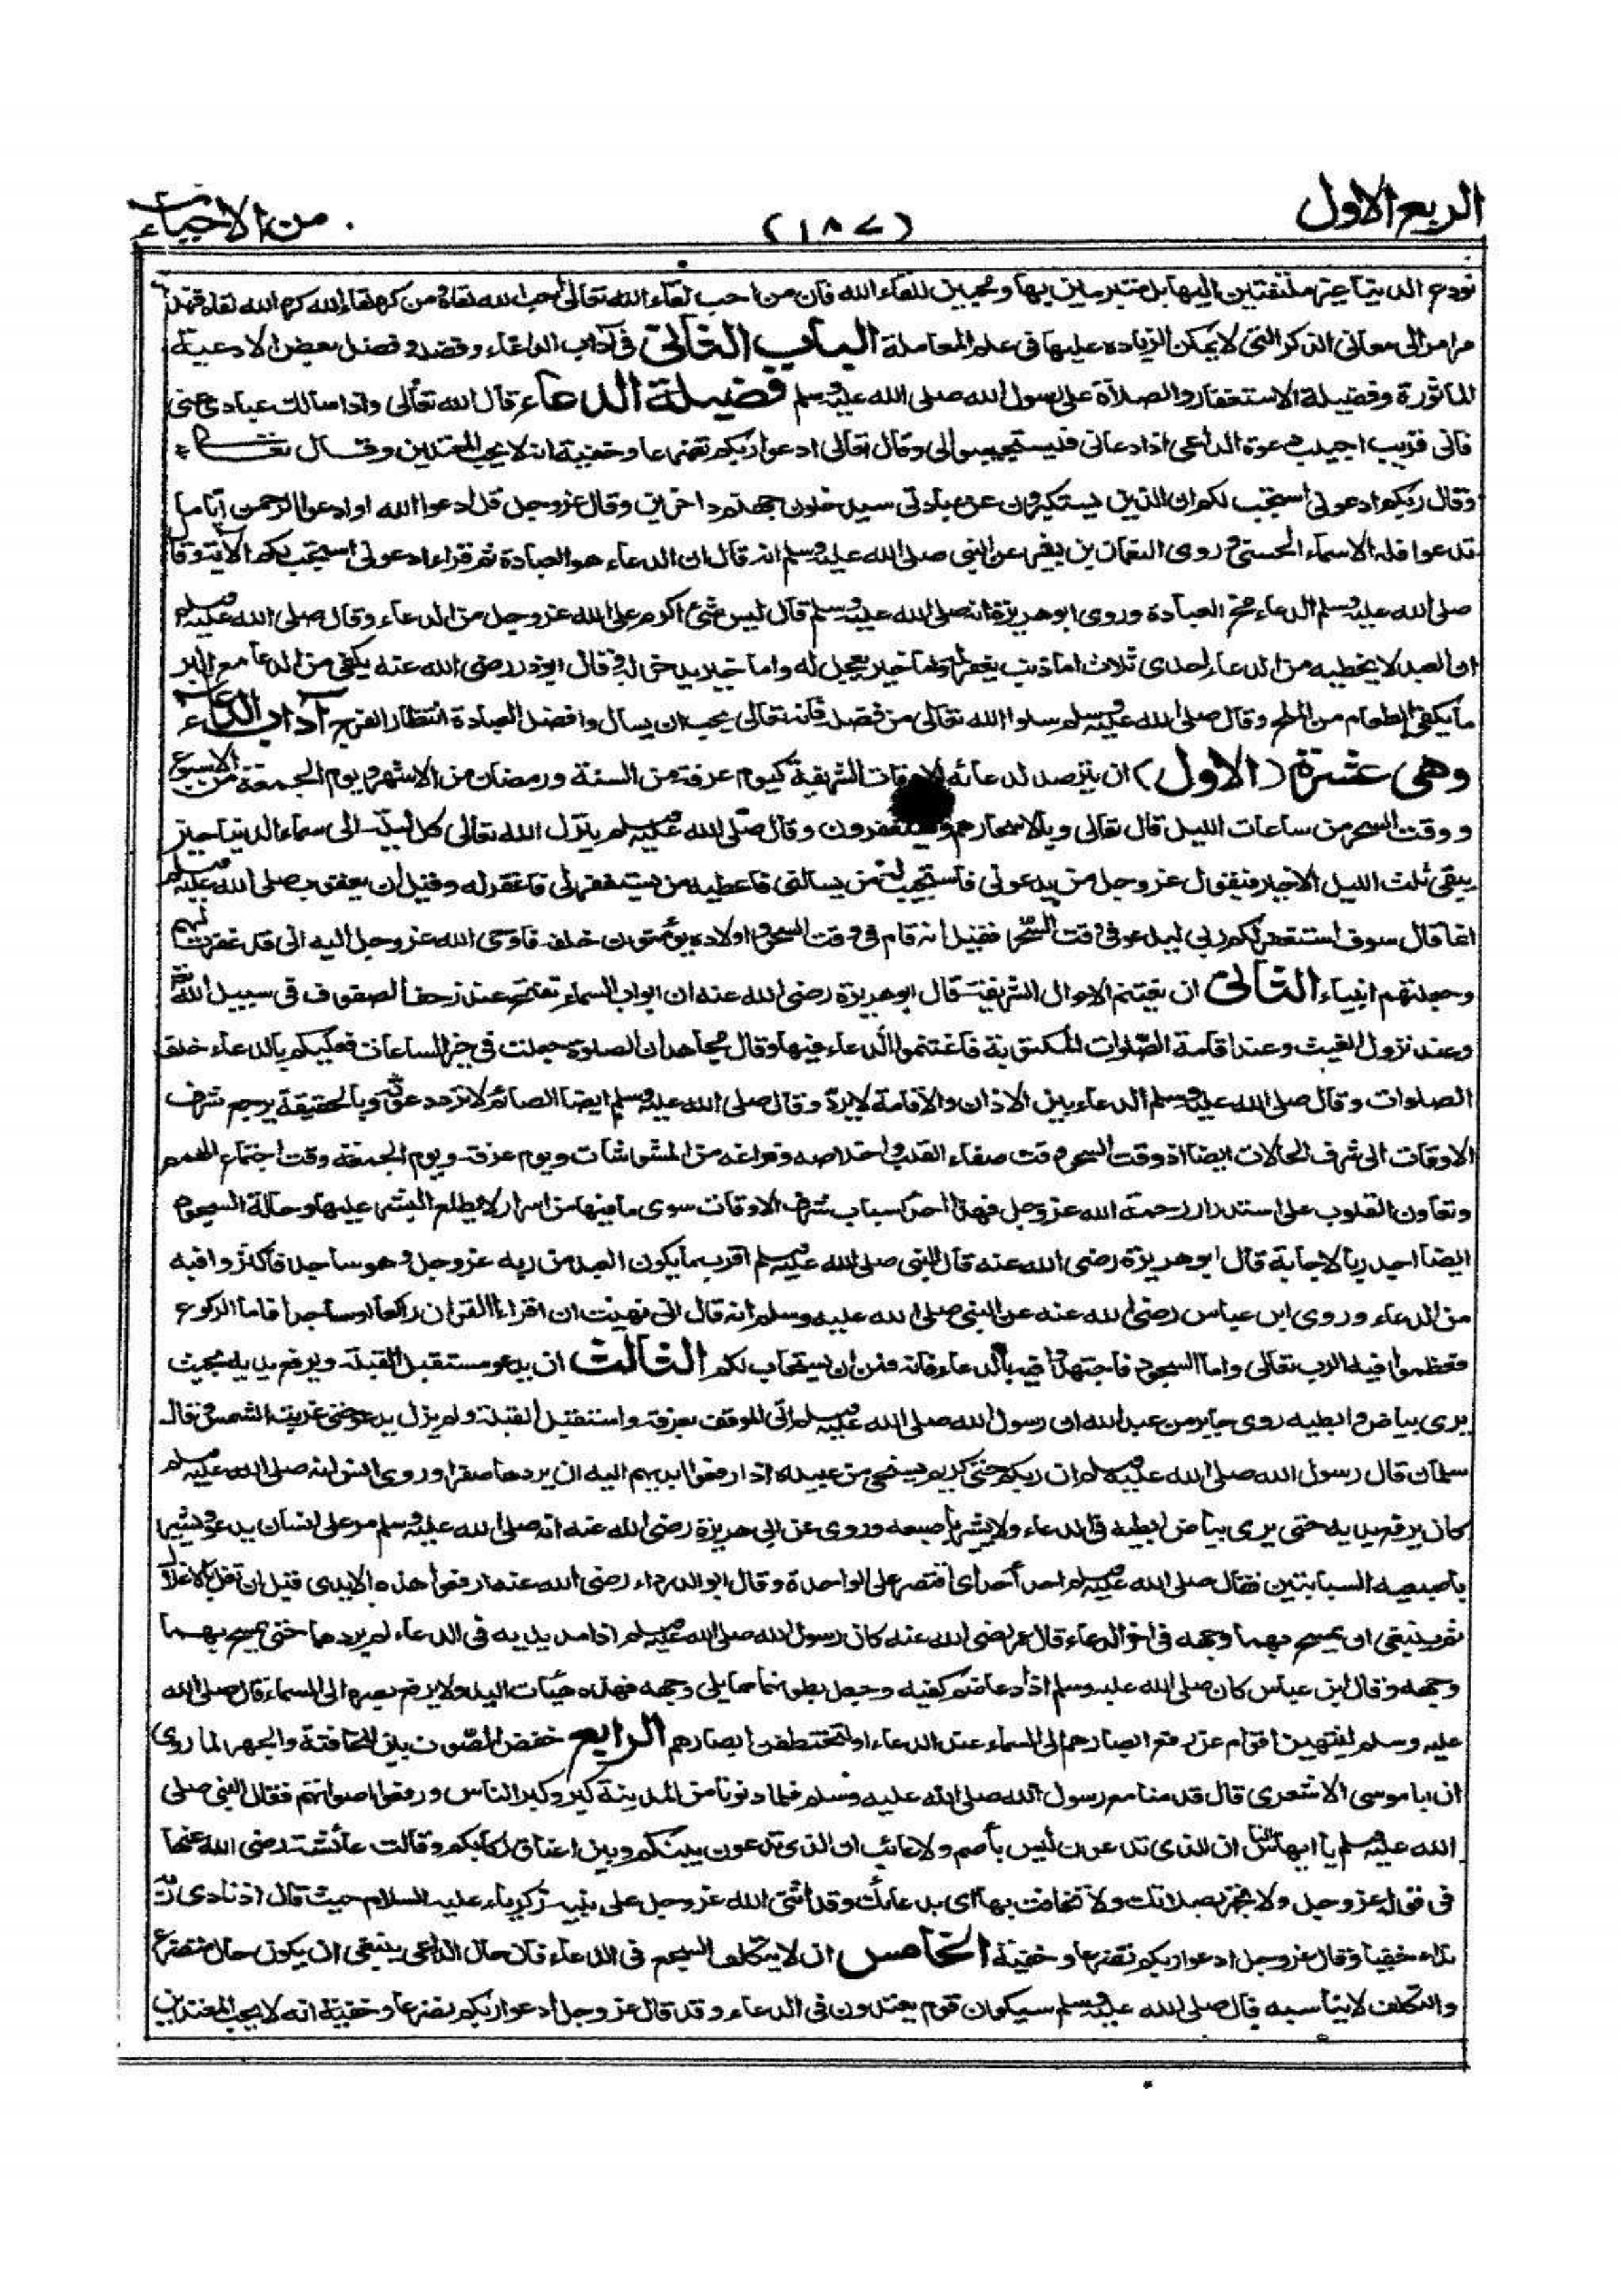 الربع الاول
(١٨٧)
من الاحياء
نودع الدنيا غير ملتفتين اليها بل متبرمين بها ومحبين للقاء الله فان من احب لقاء الله تعالى احب الله لقاءه ومن كره لقاء الله كره الله لقاءه فهذا
مرامز الى معانى الذكر التى لا يمكن الزيادة عليها فى علم المعاملة الباب الثانى فى آداب الدعاء وفضله وفضل بعض الادعية
الماثورة وفضيلة الاستغفار والصلاة على رسول الله صلى الله عليه وسلم فضيلة الدعاء قال الله تعالى واذا سالك عبادى عنى
فانى قريب اجيب دعوة الداعى اذا دعانى فليستجيبوا لى وقال تعالى ادعوا ربكم تضرعا وخفية انه لا يحب المعتدين وقال تعالى
وقال ربكم ادعونى استجب لكم ان الذين يستكبرون عن عبادتى سيدخلون جهنم داخرين وقال عز وجل قل ادعوا الله او ادعوا الرحمن اياما
تدعوا فله الاسماء الحسنى وروى النعمان بن بشير عن النبى صلى الله عليه وسلم انه قال ان الدعاء هو العبادة ثم قراء ادعونى استجب لكم الآية وقال
صلى الله عليه وسلم الدعاء مخ العبادة وروى ابو هريرة انه صلى الله عليه وسلم قال ليس شئ اكرم على الله عز وجل من الدعاء وقال صلى الله عليه وسلم
ان العبد لا يخطيه من الدعاء احدى ثلاث اما ذنب يغفر له واما خير يعجل له واما خير يدخر له وقال ابوذر رضى الله عنه يكفى من الدعا مع البر
ما يكفى الطعام من الملح وقال صلى الله عليه وسلم سلوا الله تعالى من فضله فانه تعالى يحب ان يسال وافضل العبادة انتظار الفرج آداب الدعاء
وهى عشرة (الاول) ان يترصد لدعائه الاوقات الشريفة كيوم عرفة من السنة ورمضان من الاشهر ويوم الجمعة من الاسبوع
ووقت السحر من ساعات الليل قال تعالى وبالاسحار هم يستغفرون وقال صلى الله عليه وسلم ينزل الله تعالى كل ليلة الى سماء الدنيا حين
يبقى ثلث الليل الاخير فيقول عز وجل من يدعونى فاستجيب له من يسالنى فاعطيه من يستغفرلى فاغفر له وقيل ان يعقوب صلى الله عليه وسلم
انما قال سوف استغفر لكم ربى ليدعو فى وقت السحر فقيل انه قام فى وقت السحر واولاده يؤمنون خلفه فاوحى الله عز وجل اليه انى قد غفرت لهم
وجعلتهم انبياء الثانى ان يغتنم الاحوال الشريفة قال ابو هريرة رضى الله عنه ان ابواب السماء تفتح عند زحف الصفوف فى سبيل الله تعالى
وعند نزول الغيث وعند اقامة الصلوات المكتوبة فاغتنموا الدعاء فيها وقال مجاهد ان الصلوة جعلت فى خير الساعات فعليكم بالدعاء خلف
الصلوات وقال صلى الله عليه وسلم الدعاء بين الاذان والاقامة لا يرد وقال صلى الله عليه وسلم ايضا الصائم لا ترد دعوته وبالحقيقة يرجع شرف
الاوقات الى شرف الحالات ايضا اذ وقت السحر وقت صفاء القلب واخلاصه وفراغه من المشوشات ويوم عرفة ويوم الجمعة وقت اجتماع الهمم
وتعاون القلوب على استدرار رحمة الله عز وجل فهذا احد اسباب شرف الاوقات سوى ما فيها من اسرار لا يطلع البشر عليها وحالة السجود
ايضا اجدر بالاجابة قال ابو هريرة رضى الله عنه قال النبى صلى الله عليه وسلم اقرب ما يكون العبد من ربه عز وجل وهو ساجد فاكثروا فيه
من الدعاء وروى ابن عباس رضى الله عنه عن النبى صلى الله عليه وسلم انه قال انى نهيت ان اقراء القرآن راكعا او ساجدا فاما الركوع
فعظموا فيه الرب تعالى واما السجود فاجتهدوا فيه بالدعاء فانه قمن ان يستجاب لكم الثالث ان يدعو مستقبل القبلة ويرفع يديه بحيث
يرى بياض ابطيه روى جابر بن عبد الله ان رسول الله صلى الله عليه وسلم اتى الموقف بعرفة واستقبل القبلة ولم يزل يدعو حتى غربت الشمس وقال
سلمان قال رسول الله صلى الله عليه وسلم ان ربكم حيى كريم يستحى من عبيده اذا رفعوا ايديهم اليه ان يردها صفرا وروى انس انه صلى الله عليه وسلم
كان يرفع يديه حتى يرى بياض ابطيه فى الدعاء ولا يشير باصبعه وروى عن ابى هريرة رضى الله عنه انه صلى الله عليه وسلم مر على انسان يدعو ويشير
باصبعيه السبابتين فقال صلى الله عليه وسلم احد احد اى اقتصر على الواحدة وقال ابو الدرداء رضى الله عنه ارفعوا هذه الايدى قبل ان تغل بالاغلال
ثم ينبغى ان يمسح بهما وجهه فى اخر الدعاء قال عمر رضى الله عنه كان رسول الله صلى الله عليه وسلم اذا مد يديه فى الدعاء لم يردهما حتى يمسح بهما
وجهه وقال ابن عباس كان صلى الله عليه وسلم اذا دعا ضم كفيه وجعل بطونهما مما يلى وجهه فهذه هيئات اليد ولا يرفع بصره الى السماء قال صلى الله
عليه وسلم لينتهين اقوام عن رفع ابصارهم الى السماء عند الدعاء او لتختطفن ابصارهم الرابع خفض الصوت بين المخافتة والجهر لما روى
ان ابا موسى الاشعرى قال قدمنا مع رسول الله صلى الله عليه وسلم فلما دنونا من المدينة كبر وكبر الناس ورفعوا اصواتهم فقال النبى صلى
الله عليه وسلم يا ايها الناس ان الذى تدعون ليس باصم ولا غائب ان الذى تدعون بينكم وبين اعناق ركابكم وقالت عائشة رضى الله عنها
فى قوله عز وجل ولا تجهر بصلاتك ولا تخافت بها اى بدعائك وقد اثنى الله عز وجل على نبيه زكرياء عليه السلام حيث قال اذ نادى ربه
نداء خفيا وقال عز وجل ادعوا ربكم تضرعا وخفية الخامس ان لا يتكلف السجع فى الدعاء فان حال الداعى ينبغى ان يكون حال متضرع
والتكلف لا يناسبه قال صلى الله عليه وسلم سيكون قوم يعتدون فى الدعاء وقد قال عز وجل ادعوا ربكم تضرعا وخفية انه لا يحب المعتدين